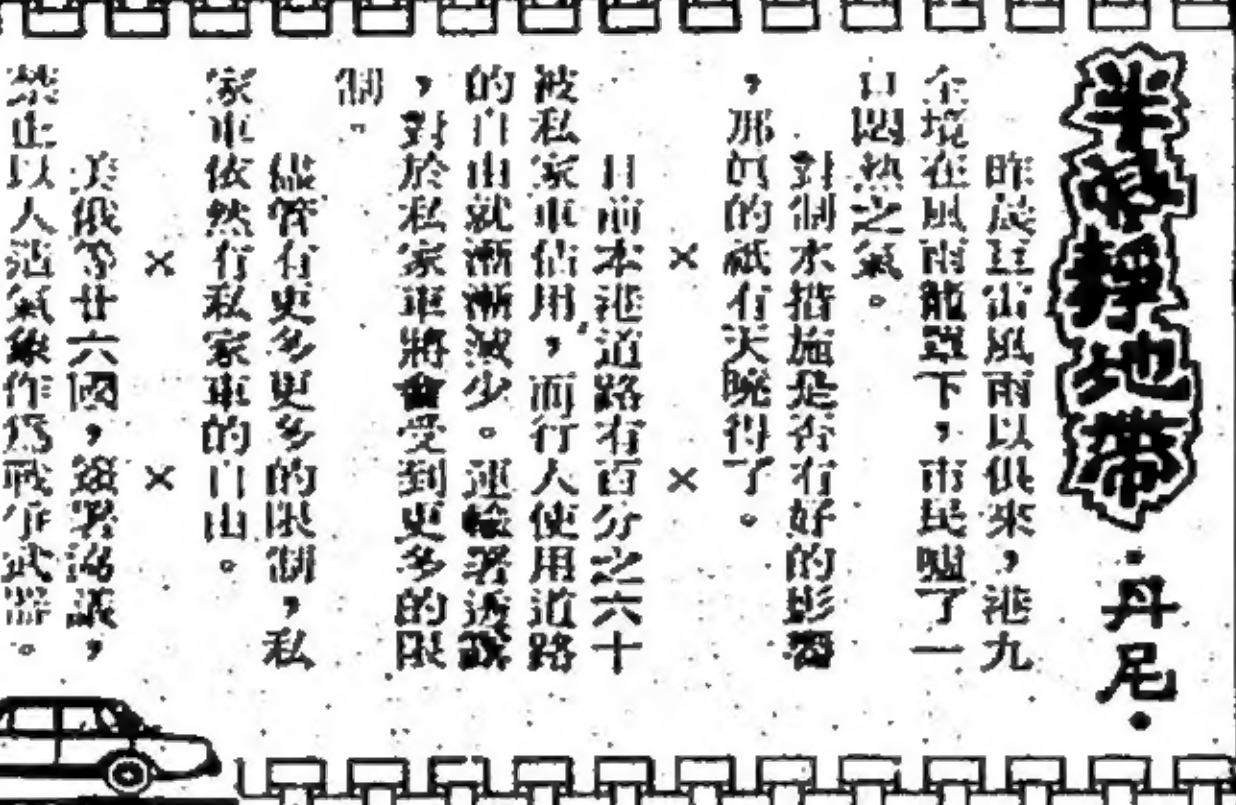 半寂靜地帶
·丹尼·
昨晨豆雷風雨以俱來，港九
全境在風雨籠罩下，市民噓了一
口悶熱之氣。
對制水措施是否有好的影響
，那眞的祇有天曉得了。
× ×
目前本港道路有百分之六十
被私家車佔用，而行人使用道路
的自由就漸漸減少。運輸署透露
，對於私家車將會受到更多的限
制。
儘管有更多更多的限制，私
家車依然有私家車的自由。
× ×
美俄等廿六國，簽署協議，
禁止以人造氣象作爲戰爭武器。